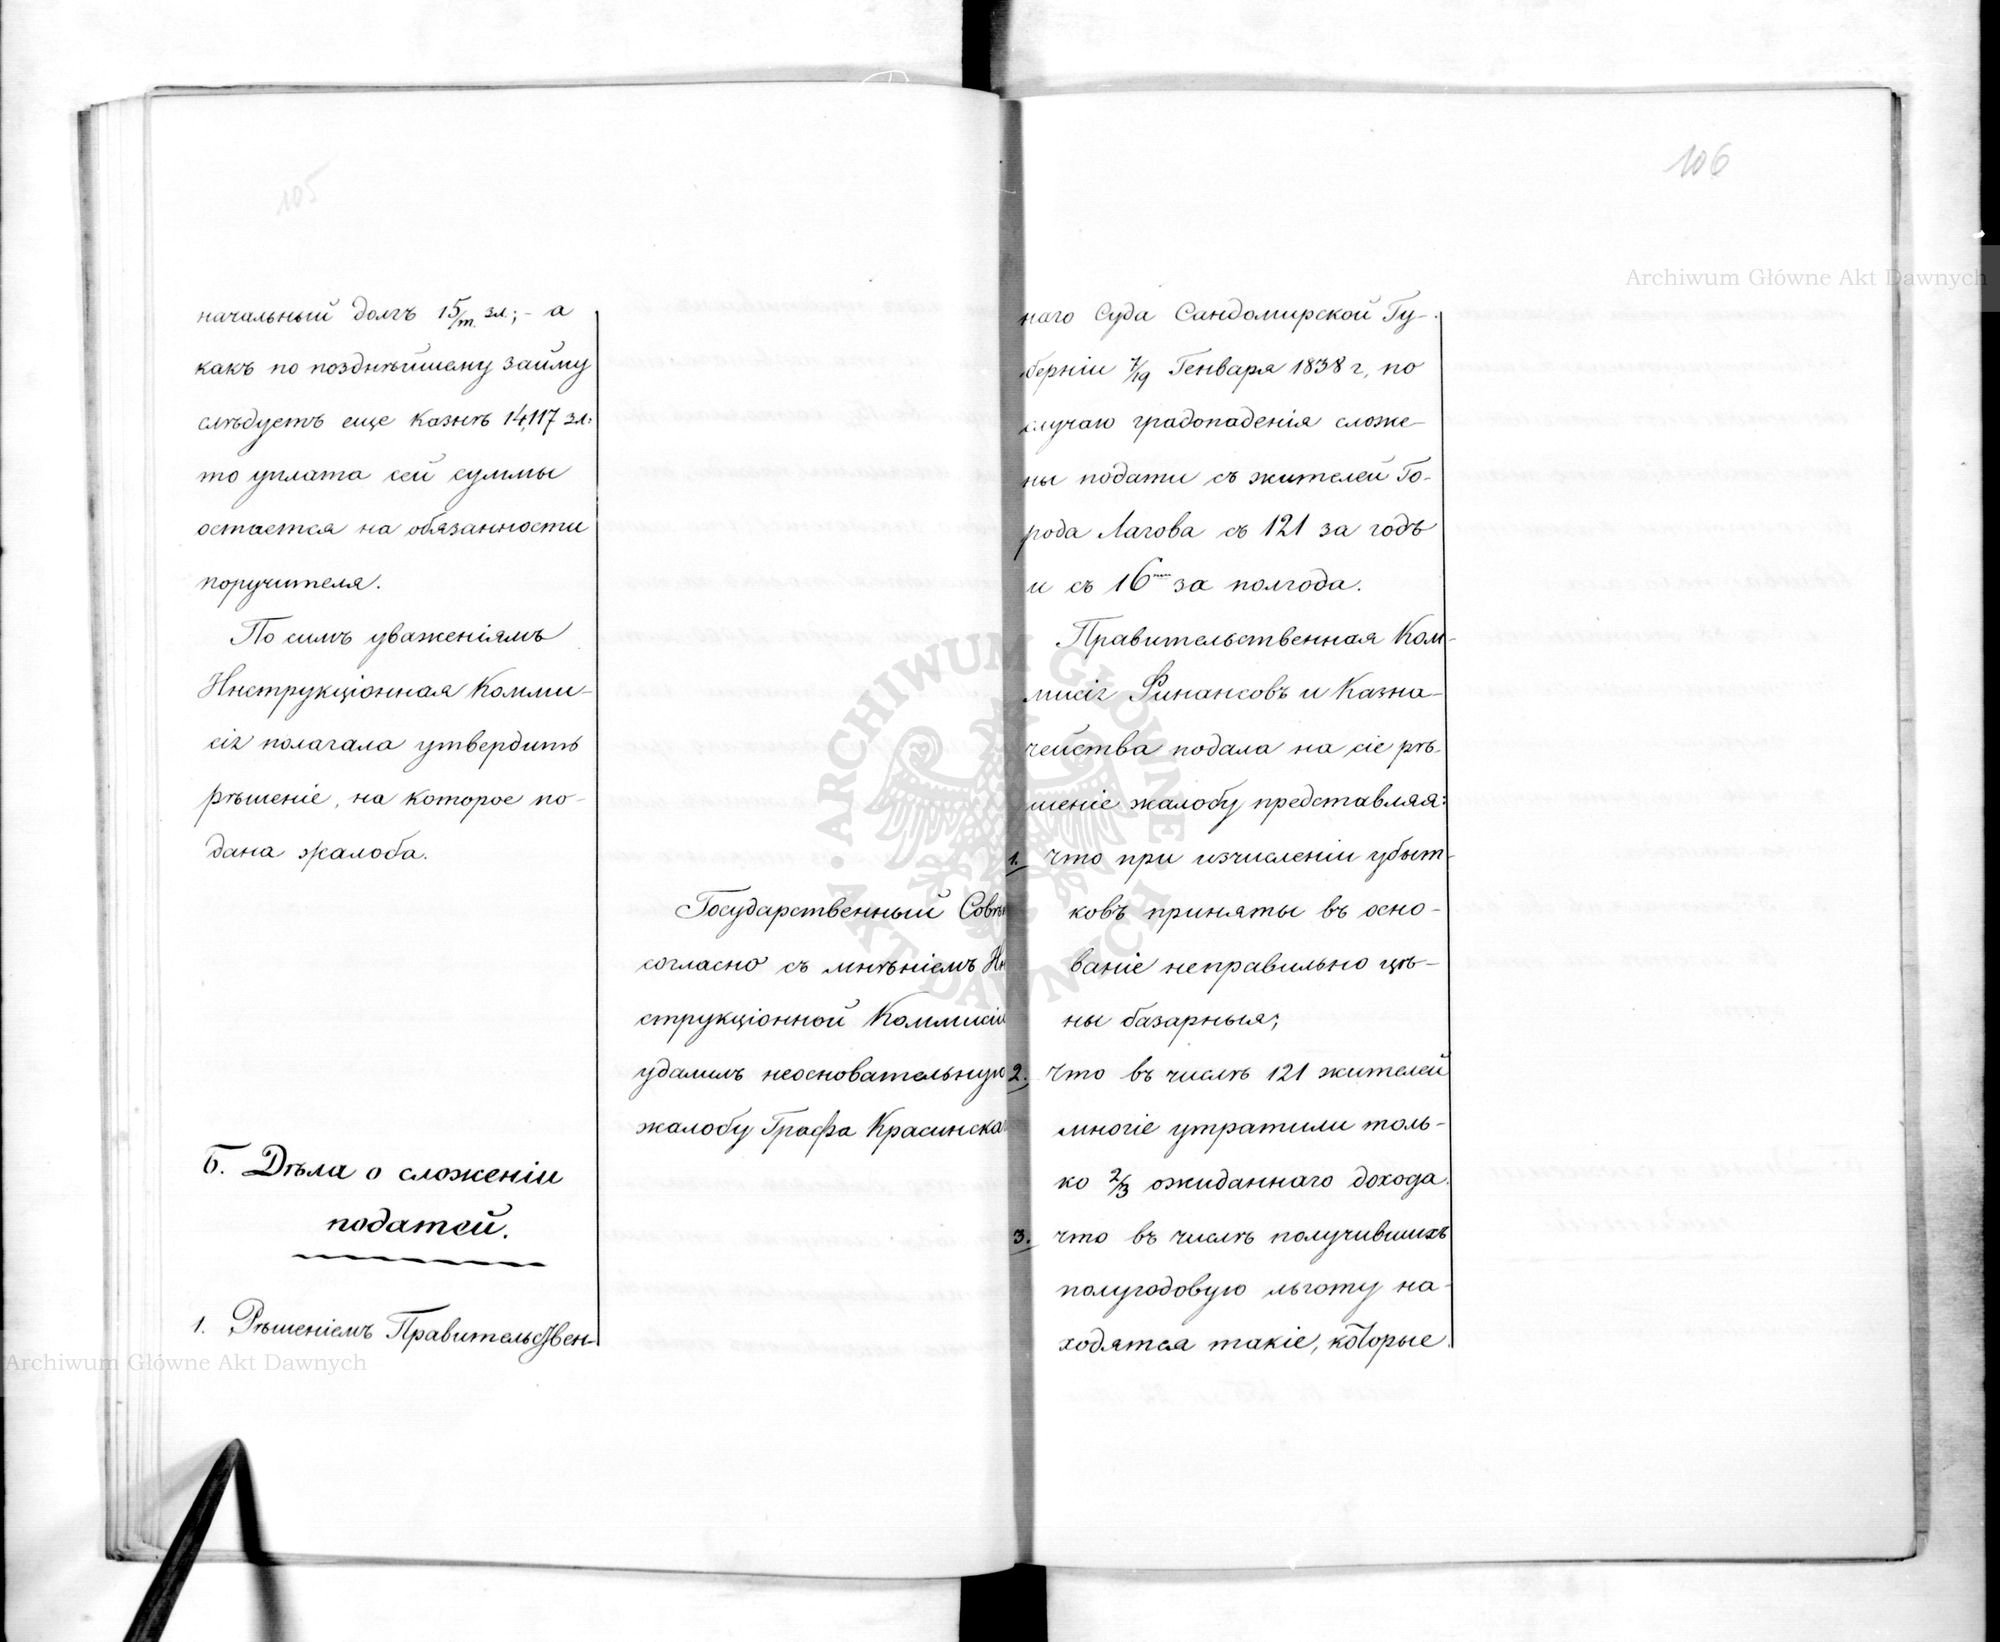 105
начальный долгъ 15/m. зл.; - а
какъ по позднѣйшему займу
слѣдуетъ еще Казнѣ 14,117 зл:
то уплата сей суммы
остается на обязанности
поручителя.
По симъ уваженіямъ
Инструкціонная Комми-
сія полагала утвердить
рѣшеніе, на которое по-
дана жалоба.
Государственный Совѣтъ
согласно съ мнѣніемъ Ин
струкціонной Коммисіи
удалилъ неосновательную
жалобу Графа Красинска
Б. Дѣла о сложеніи
податей.
1. Рѣшеніемъ Правительствен-
106
наго Суда Сандомирской Гу-
берніи 7/19 Генваря 1838 г, по
случаю градопаденія сложе-
ны подати съ жителей Го-
рода Лагова съ 121 за годъ
и съ 16 за полгода.
Правительственная Ком-
мисія Финансовъ и Казна-
чейства подала на сіе рѣ-
шеніе жалобу представляя:
1. что при изчисленіи убыт-
ковъ приняты въ осно-
ваніе неправильно цѣ-
ны базарныя;
2. что въ числѣ 121 жителей
многіе утратили толь-
ко 2/3 ожиданнаго дохода.
3. что въ числѣ получившихъ
полугодовую льготу на-
ходятся такіе, которые
Archiwum Główne Akt Dawnych
Archiwum Główne Akt Dawnych
ARCHIWUM GŁÓWNE AKT DAWNYCH